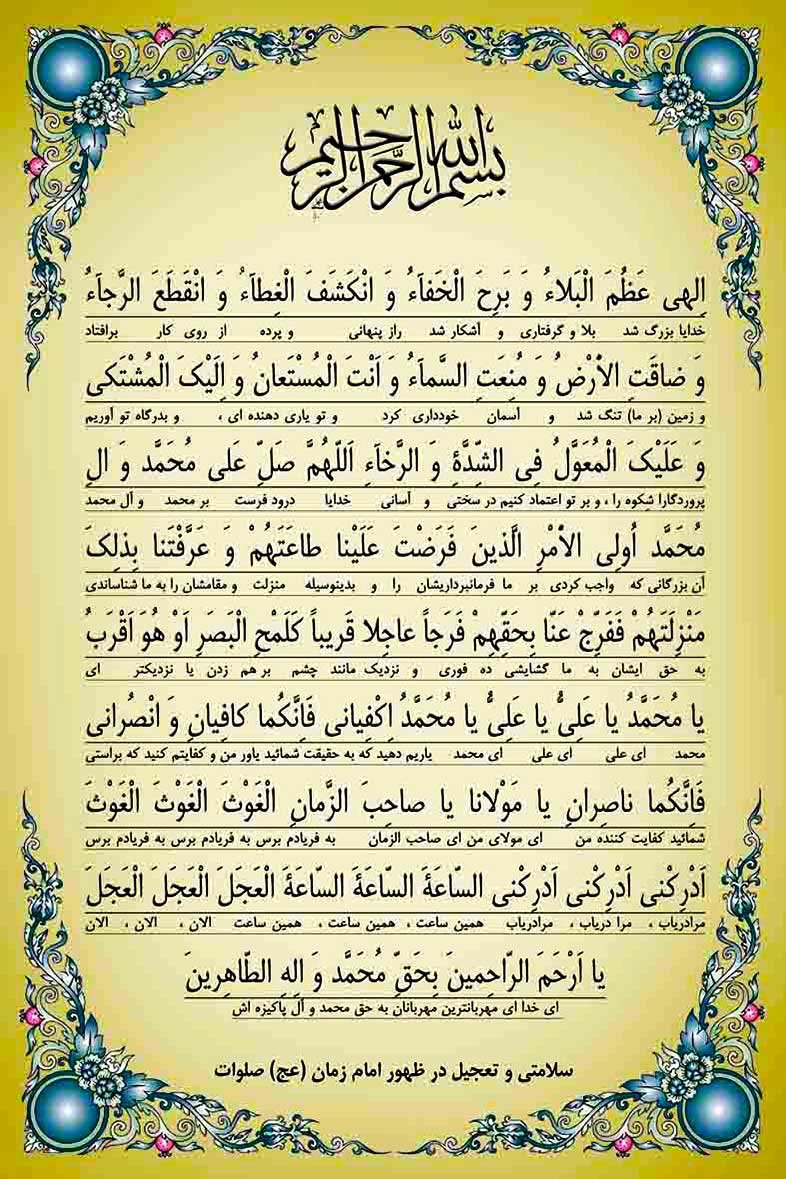 بسم الله الرحمن الرحیم
اِلهی عَظُمَ الْبَلاءُ وَ بَرِحَ الْخَفآءُ وَ انْكَشَفَ الْغِطآءُ وَ انْقَطَعَ الرَّجآءُ
خدایا بزرگ شد بلا و گرفتاری و آشکار شد راز پنهانی و پرده از روی کار برافتاد
وَ ضاقَتِ الاَْرْضُ وَ مُنِعَتِ السَّمآءُ وَ اَنْتَ الْمُسْتَعانُ وَ اِلَیْکَ الْمُشْتَکی
و زمین (بر ما) تنگ شد و آسمان خودداری کرد و تو یاری دهنده ای ، و بدرگاه تو آوریم
وَ عَلَیْکَ الْمُعَوَّلُ فِی الشِّدَّةِ وَ الرَّخآءِ اَللّهُمَّ صَلِّ عَلی مُحَمَّد وَ الِ
پروردگارا شکوه را ، و بر تو اعتماد کنیم در سختی و آسانی خدایا درود فرست بر محمد و آل محمد
مُحَمَّد اُولِی الاَْمْرِ الَّذینَ فَرَضْتَ عَلَیْنا طاعَتَهُمْ وَ عَرَّفْتَنا بِذلِکَ
آن بزرگانی که واجب کردی بر ما فرمانبرداریشان را و بدینوسیله منزلت و مقامشان را به ما شناساندی
مَنْزِلَتَهُمْ فَفَرِّجْ عَنّا بِحَقِّهِمْ فَرَجاً عاجِلا قَریباً کَلَمْحِ الْبَصَرِ اَوْ هُوَ اَقْرَبُ
به حق ایشان به ما گشایشی ده فوری و نزدیک مانند چشم بر هم زدن یا نزدیکتر ای
یا مُحَمَّدُ یا عَلِیُّ یا عَلِیُّ یا مُحَمَّدُ اِکْفِیانی فَاِنَّکُما کافِیانِ وَ انْصُرانی
محمد ای علی ای علی ای محمد یاریم دهید که به حقیقت شمائید یاور من و کفایتم کنید که براستی
فَاِنَّکُما ناصِرانِ یا مَوْلانا یا صاحِبَ الزَّمانِ الْغَوْثَ الْغَوْثَ الْغَوْثَ
شمائید کفایت کننده من ای مولای من ای صاحب الزمان به فریادم برس به فریادم برس به فریادم برس
اَدْرِکْنی اَدْرِکْنی اَدْرِکْنی السّاعَةَ السّاعَةَ السّاعَةَ الْعَجَلَ الْعَجَلَ الْعَجَلَ
مرادریاب ، مرا دریاب ، مرادریاب همین ساعت ، همین ساعت ، همین ساعت الان ، الان ، الان
یا اَرْحَمَ الرّاحِمینَ بِحَقِّ مُحَمَّد وَ الِهِ الطّاهِرینَ
ای خدا ای مهربانترین مهربانان به حق محمد و آل پاکیزه اش
سلامتی و تعجیل در ظهور امام زمان (عج) صلوات